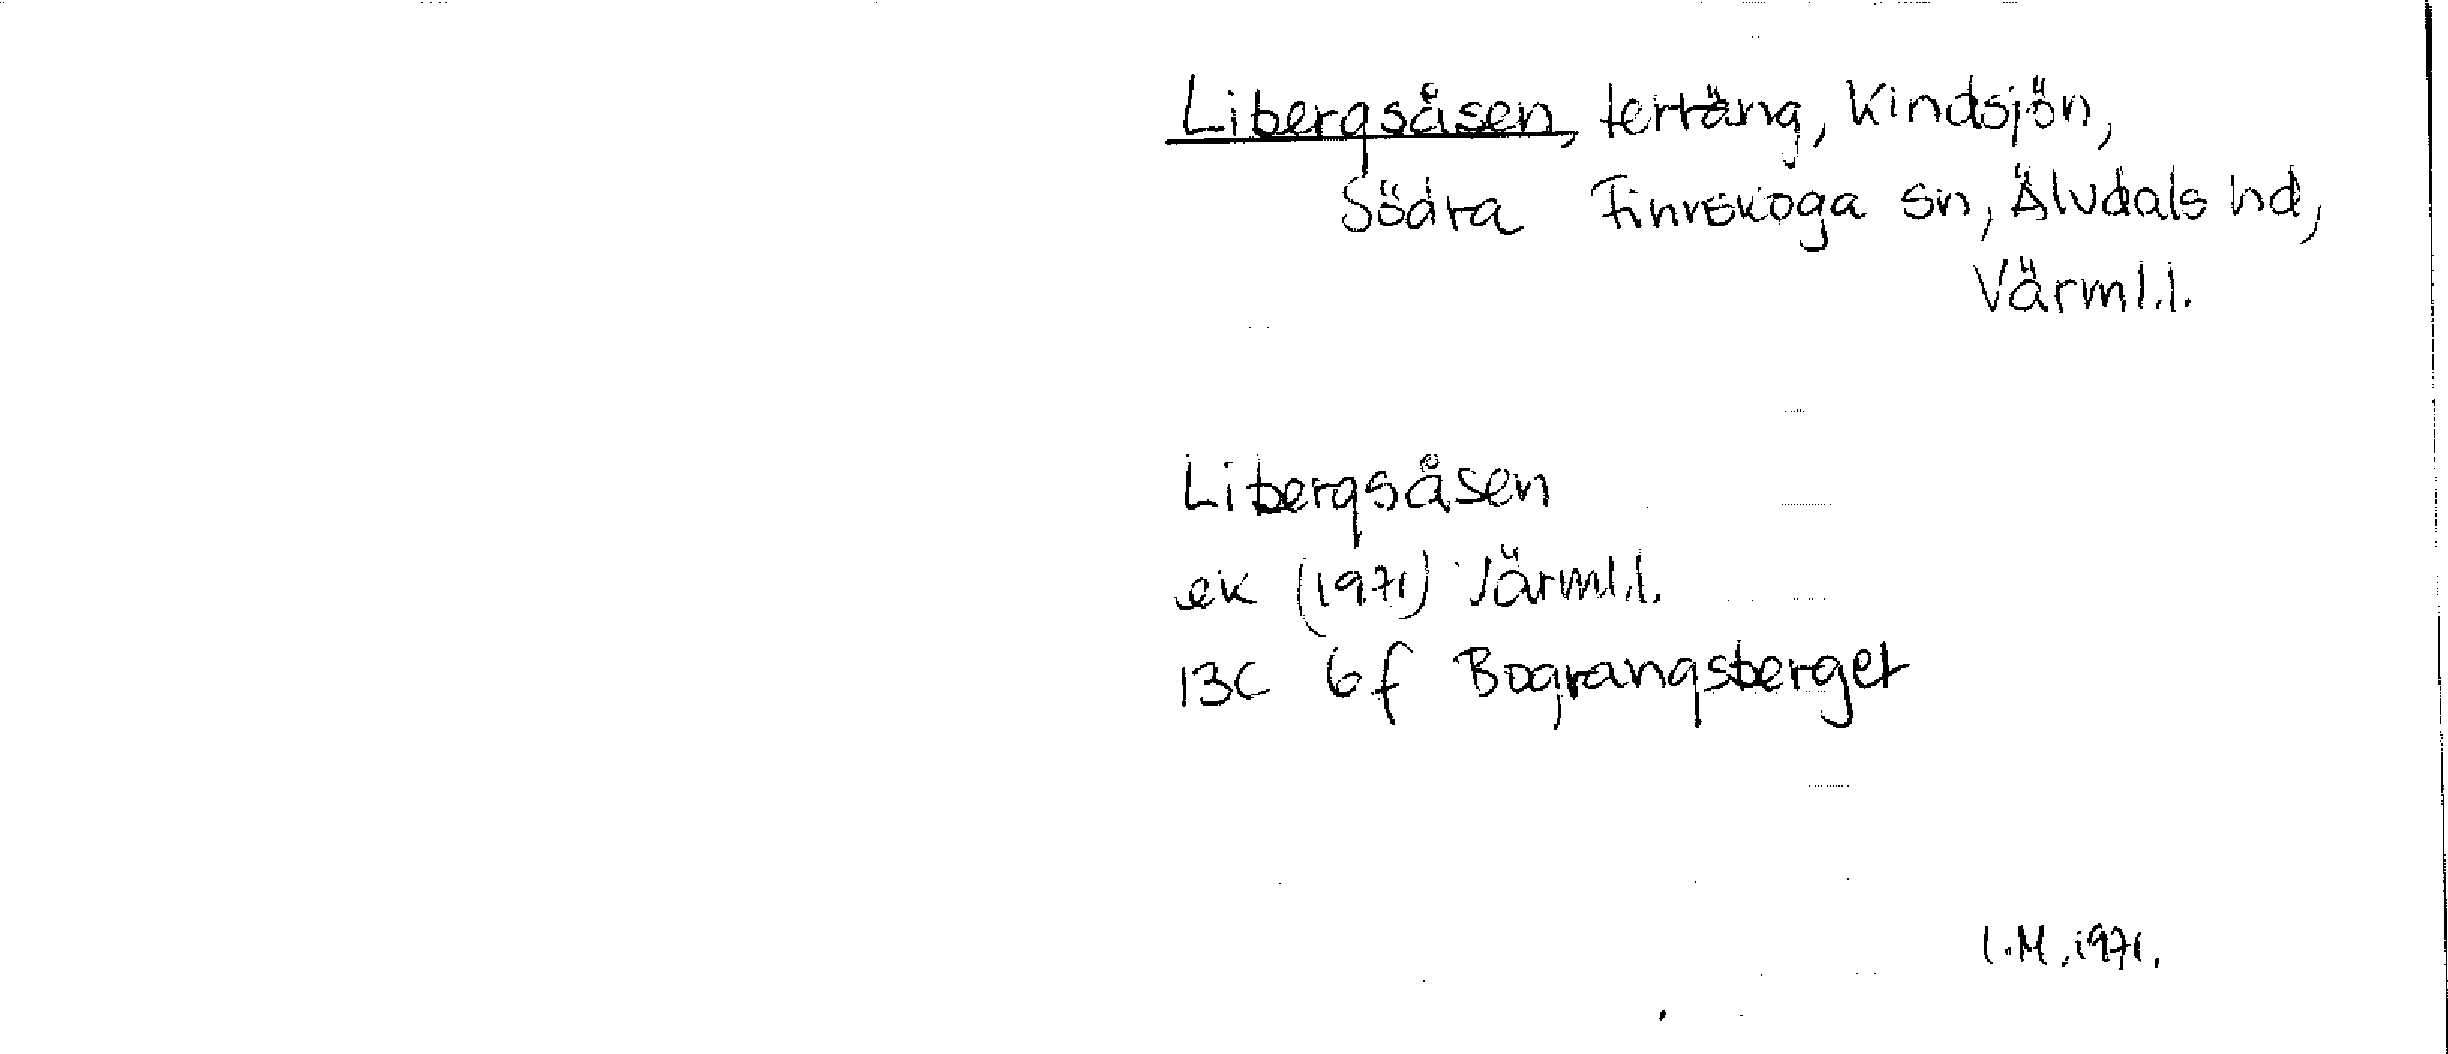 Libergsåsen, terräng, Kindsjön,
Södra Finnskoga sn, Älvdals hd,
Värml.l.
Libergsåsen
ek (1971) Värml.l.
13C 6f Bograngsberget
I.M. 1971.